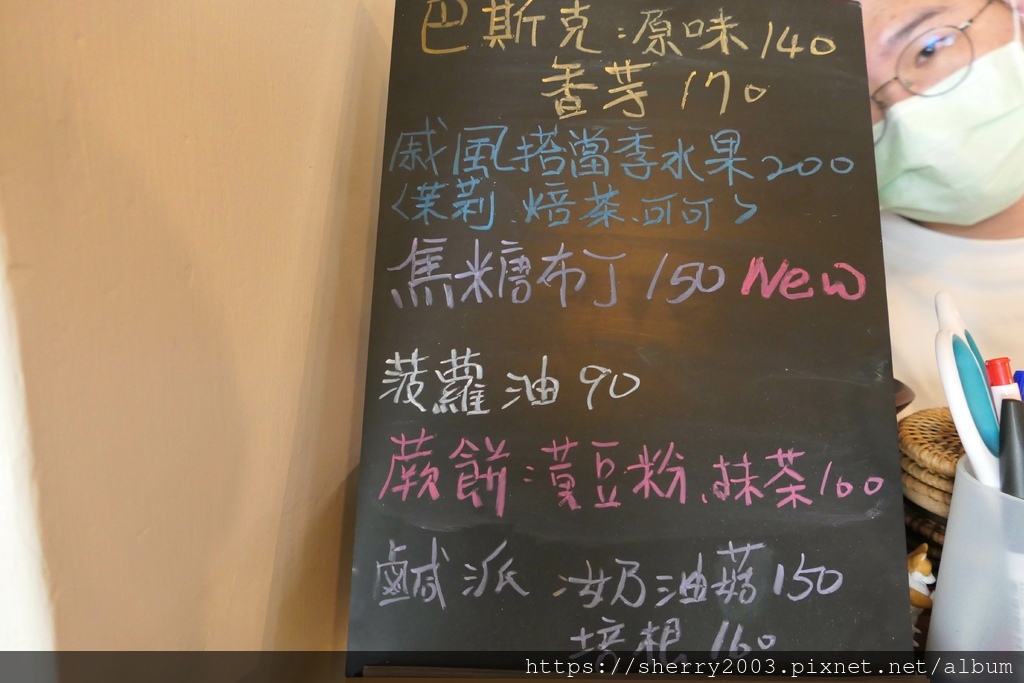 巴斯克：原味140
香芋170
戚風搭當季水果200
<茉莉、焙茶、可可>
焦糖布丁150 New
菠蘿油90
蕨餅：黃豆粉、抹茶100
鹹派：奶油菇150
培根160
https://sherry2003.pixnet.net/album